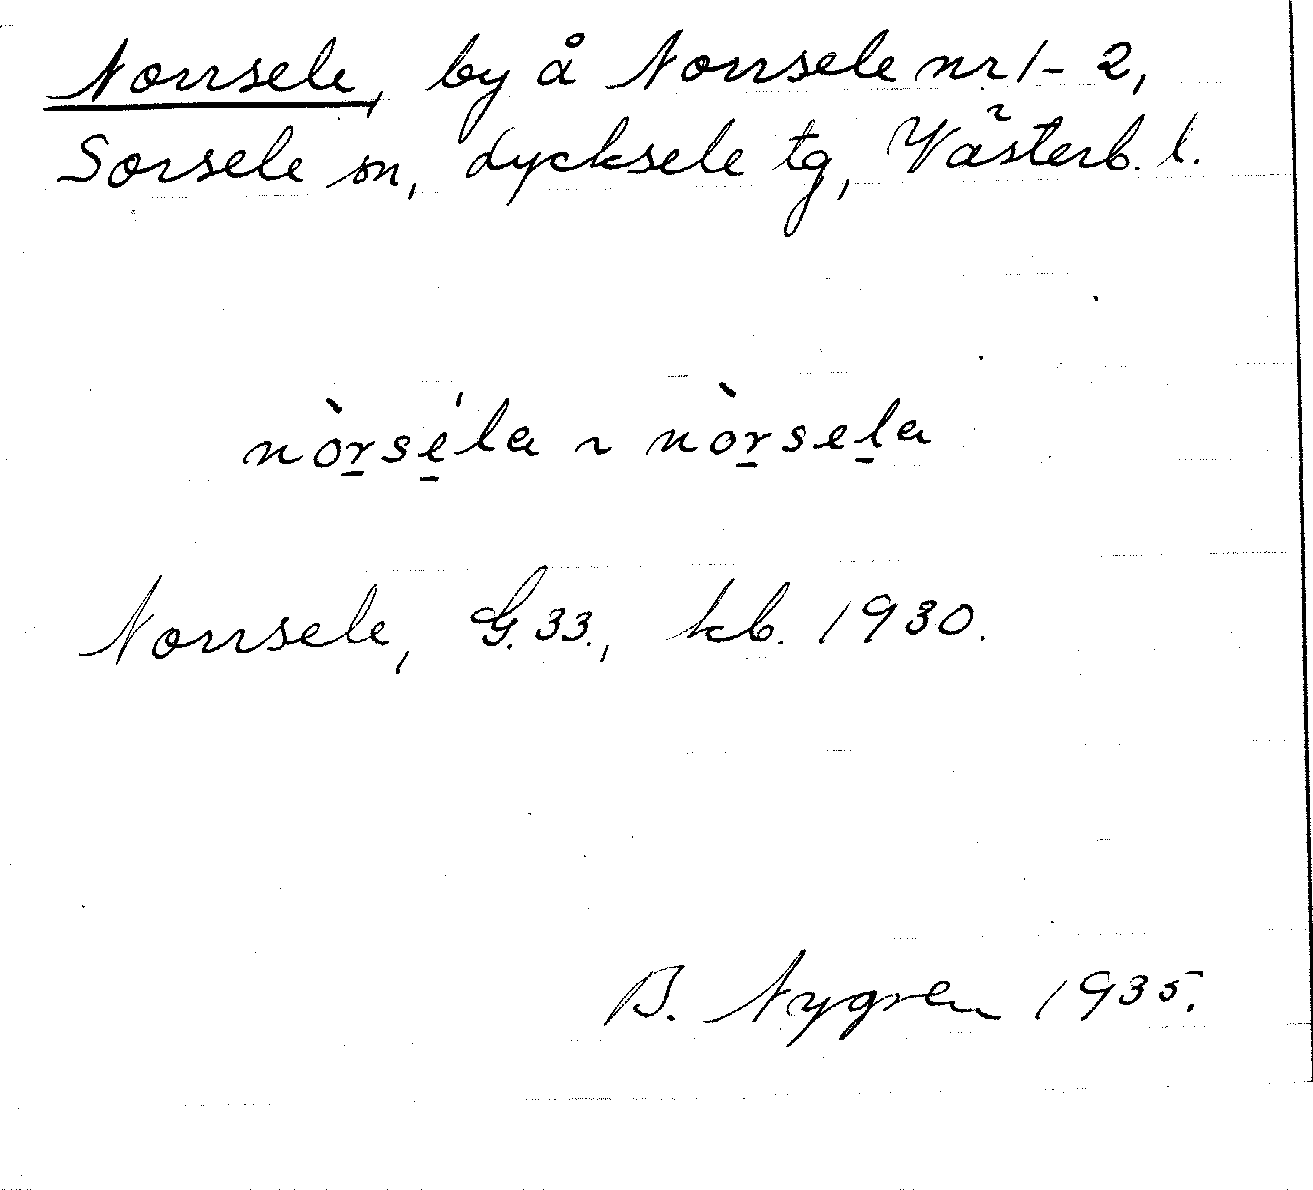 Norrsele, by å Norrsele nr 1-2,
Sorsele sn, Lycksele tg, Västerb. l.
nòr̲sé̲la ~ nòr̲sel̲a
Norrsele, G.33., kb. 1930.
B. Nygren 1935.